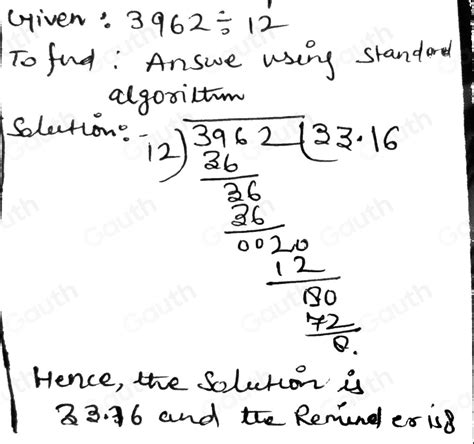 Given : 3962 ÷ 12
To find : Answe using standard
algorithm
Solution:-
12) 3962 (33.16
36
36
36
0020
12
80
72
8.
Hence, the solution is
33.16 and the Reminder is 8
Gauth